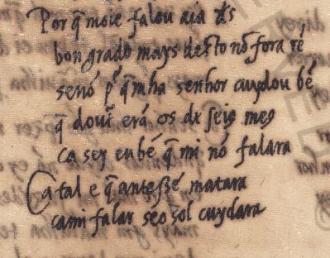 Por q̃ moie falou aia d̃s
bon grado mays desto nõ fora rẽ
senõ p̃ q̃ mha senhor cuydou bẽ
q̃ dout̃ erã os dx seis meg
ca sey eu bẽ q̃ mi nõ falara
Ca tal e q̃ antesse matara
ca mi falar seo sol cuydara